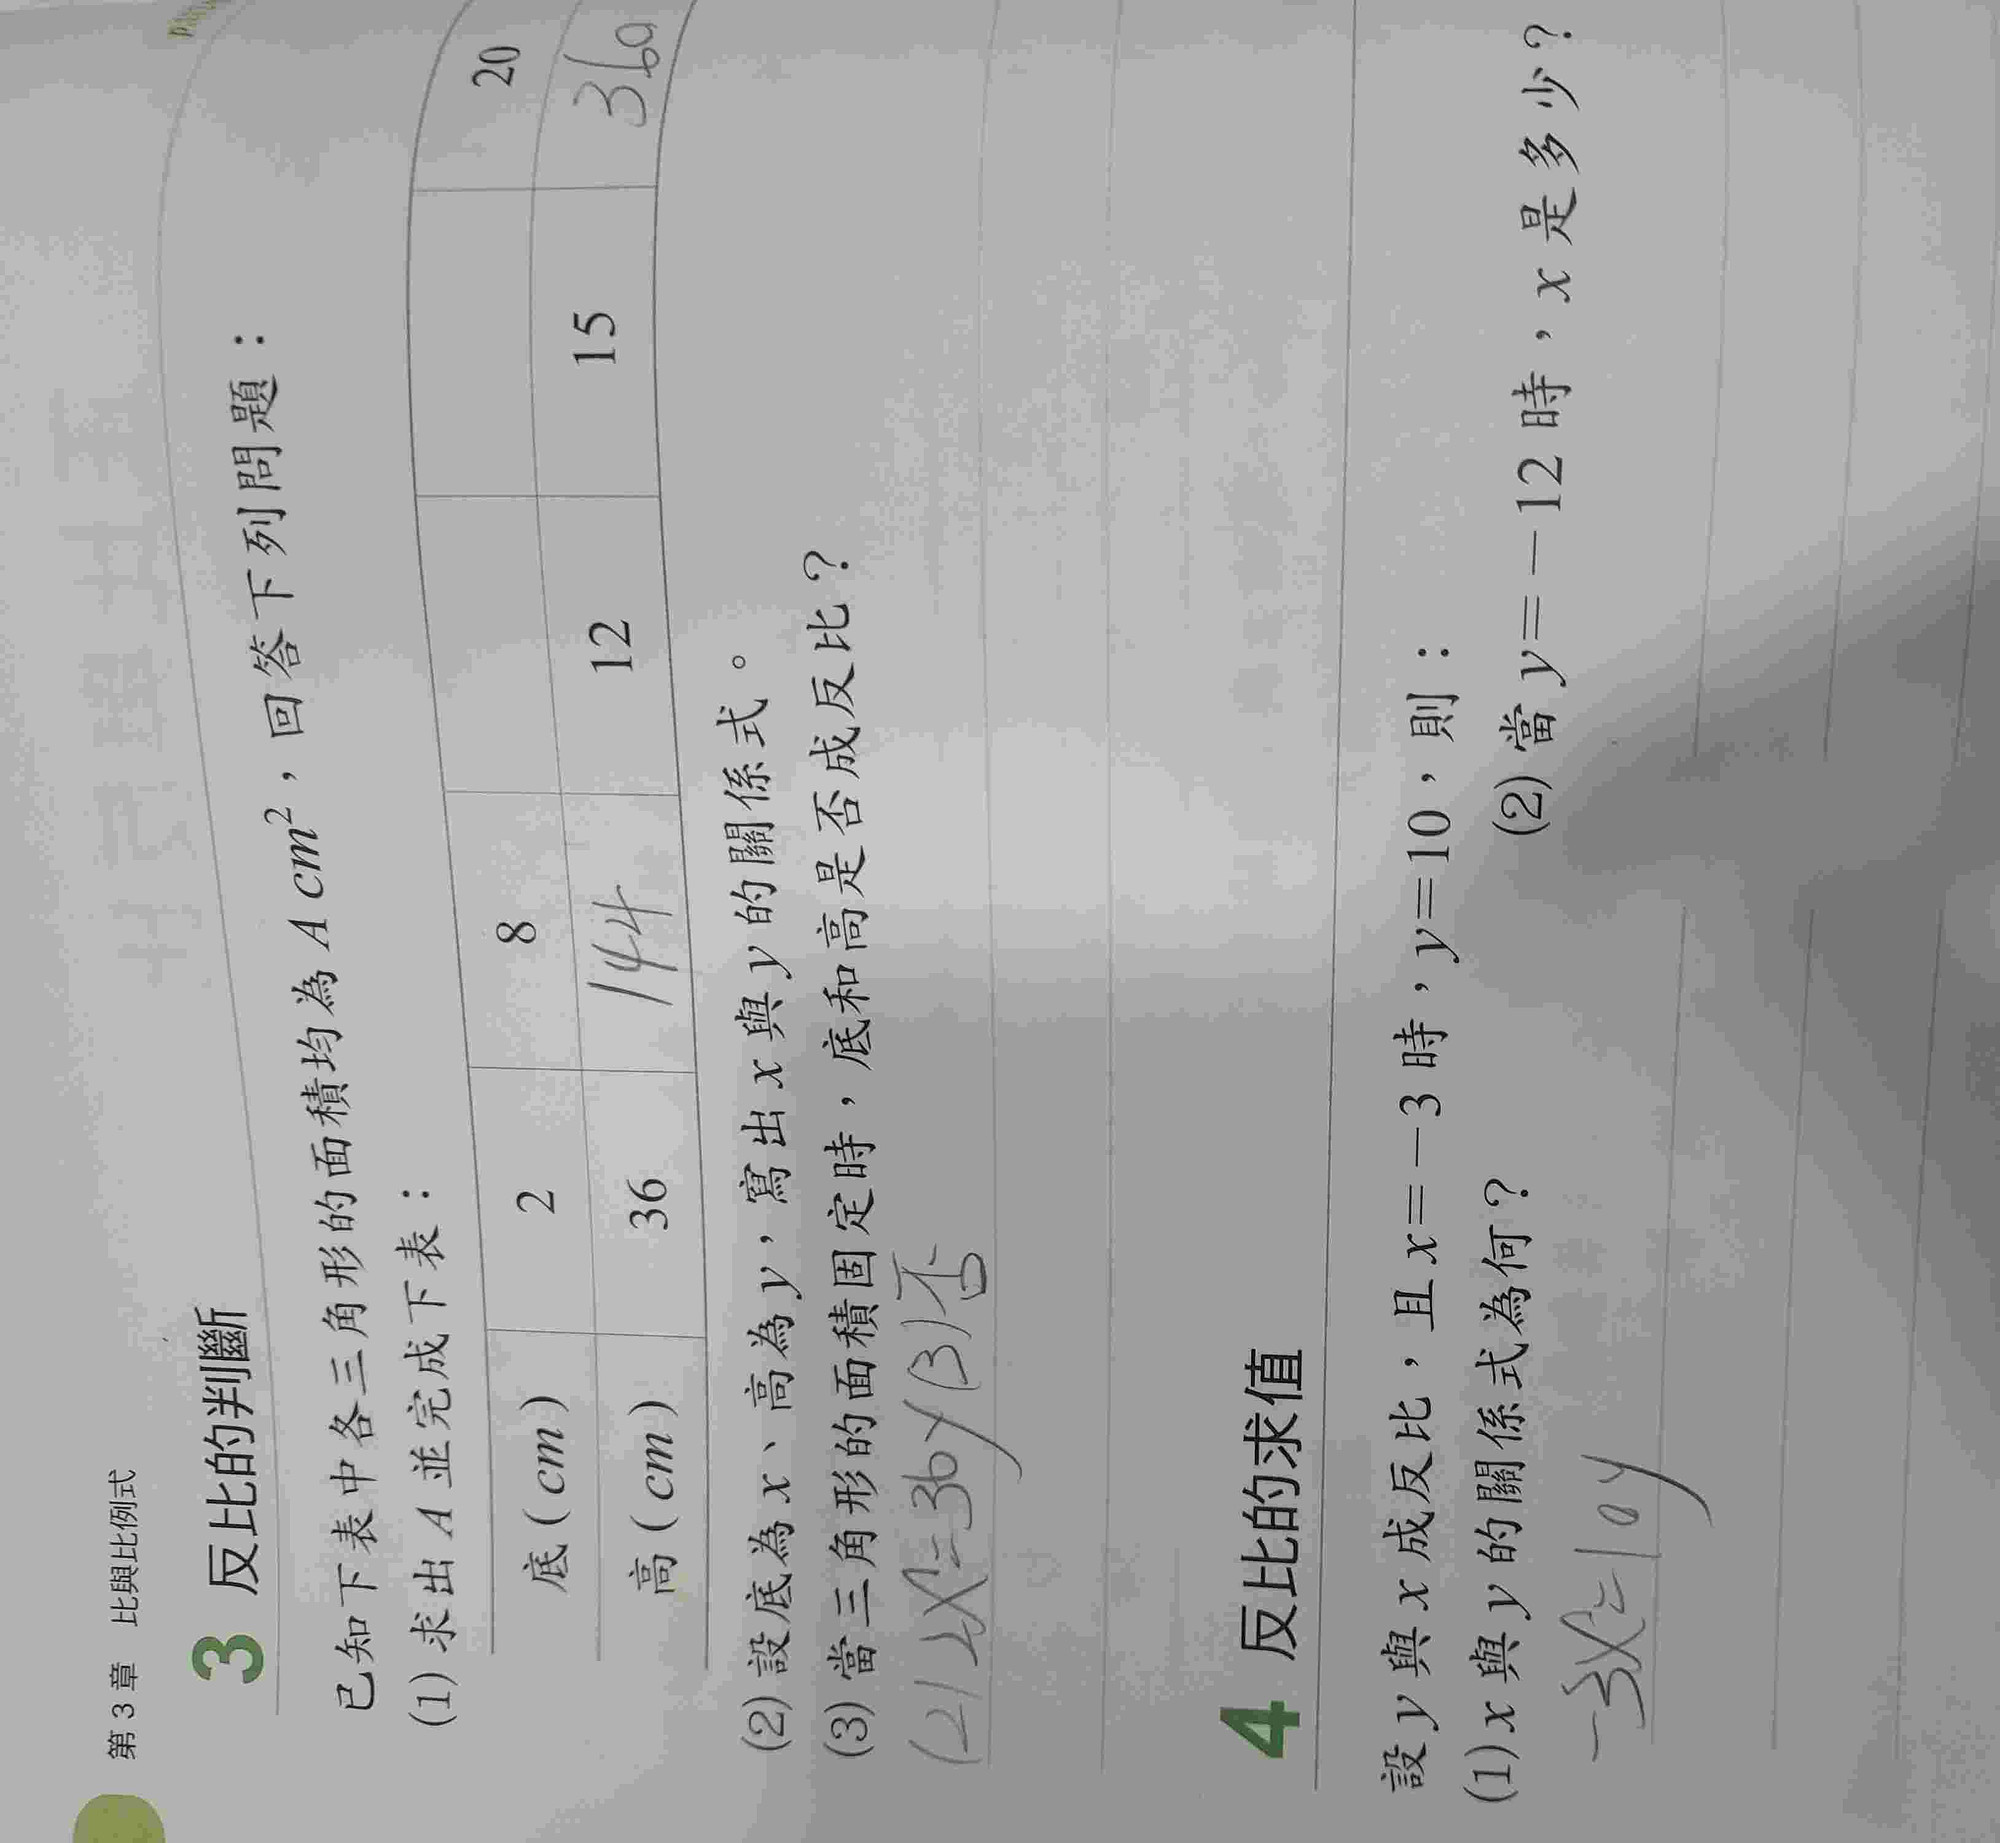 第3章 比與比例式
3 反比的判斷
已知下表中各三角形的面積均為 A cm²，回答下列問題：
(1) 求出 A 並完成下表：
底 ( cm ) 2 8 20
高 ( cm ) 36 144 12 15 360
(2) 設底為 x、高為 y，寫出 x 與 y 的關係式。
(3) 當三角形的面積固定時，底和高是否成反比？
(2) 2X=36y (3) 否
4 反比的求值
設 y 與 x 成反比，且 x=－3 時，y=10，則：
(1) x 與 y 的關係式為何？ (2) 當 y=－12 時，x 是多少？
-3X=10y